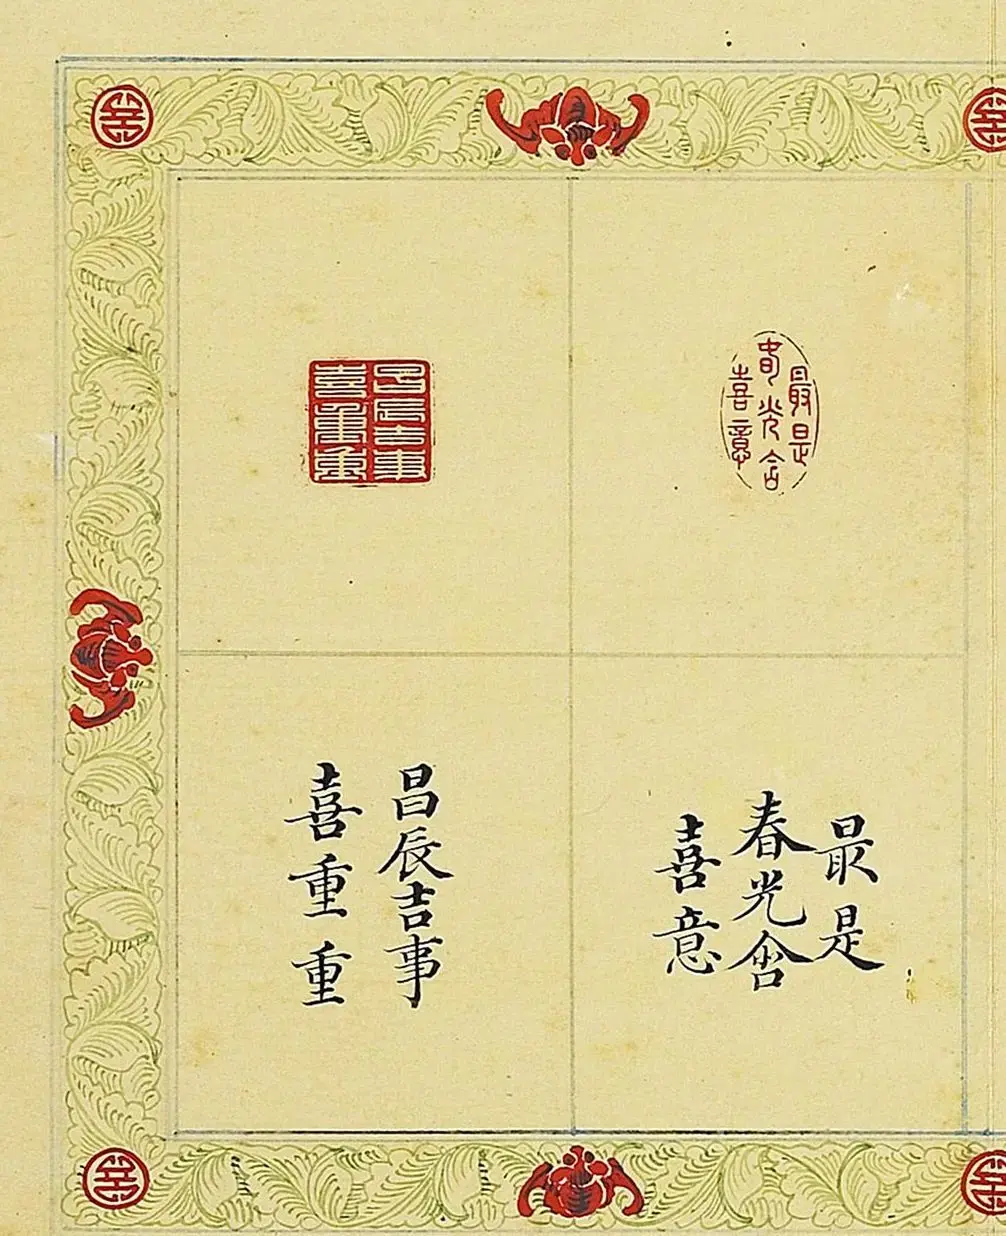 最是
春光含
喜意
昌辰吉事
喜重重
最是
春光含
喜意
昌辰吉事
喜重重